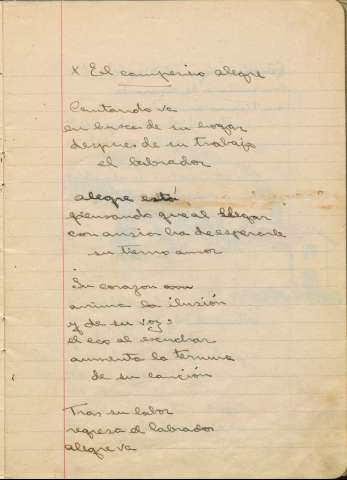 x El campesino alegre
Cantando va
en busca de su hogar
despues de su trabajo
el labrador
alegre está
pensando que al llegar
con ansia ha de esperarle
su tierno amor
Su corazon
anima la ilusión
y de su voz
el eco al escuchar
aumenta la ternura
de su canción
Tras su labor
regresa el labrador
alegre va